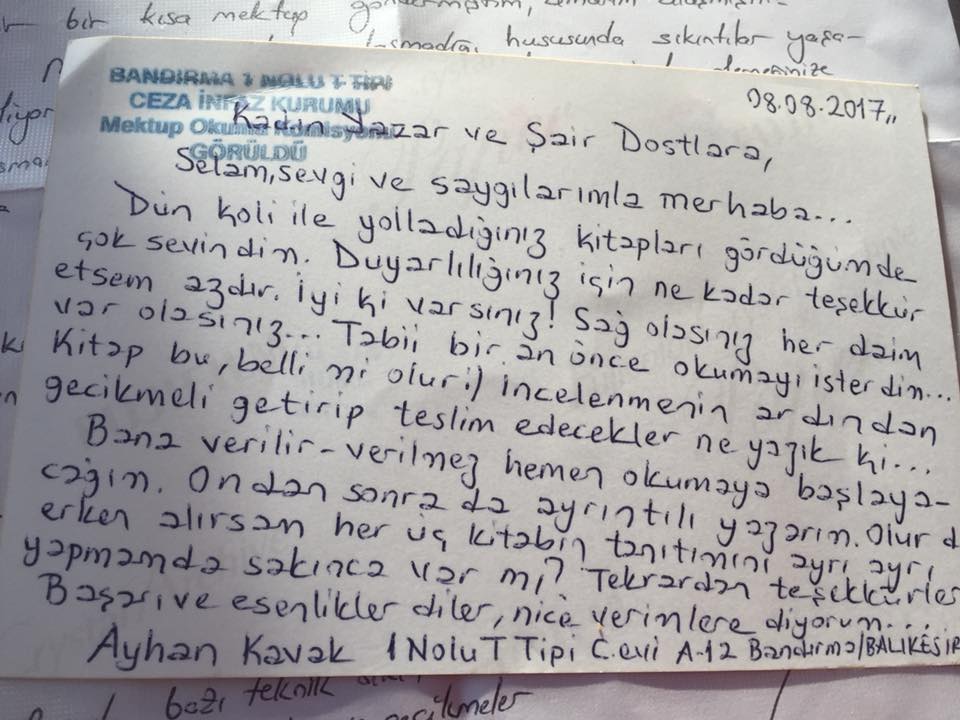 bir kısa mektup
hususunda sıkıntılar yaşa-
BANDIRMA 1 NOLU T TİPİ
CEZA İNFAZ KURUMU
Mektup Okuma Komisyonu
GÖRÜLDÜ
08.08.2017,,
Kadın Yazar ve Şair Dostlara,
Selam, sevgi ve saygılarımla merhaba...
Dün koli ile yolladığınız kitapları gördüğümde
çok sevindim. Duyarlılığınız için ne kadar teşekkür
etsem azdır. İyi ki varsınız! Sağ olasınız her daim
var olasınız... Tabii bir an önce okumayı isterdim...
Kitap bu, belli mi olur:) incelenmenin ardından
gecikmeli getirip teslim edecekler ne yazık ki...
Bana verilir-verilmez hemen okumaya başlaya-
cağım. Ondan sonra da ayrıntılı yazarım. Olur da
erken alırsam her üç kitabın tanıtımını ayrı ayrı
yapmamda sakınca var mı? Tekrardan teşekkürler
Başarı ve esenlikler diler, nice verimlere diyorum...
Ayhan Kavak 1 Nolu T Tipi C.evi A-12 Bandırma/BALIKESİR
bazı teknik